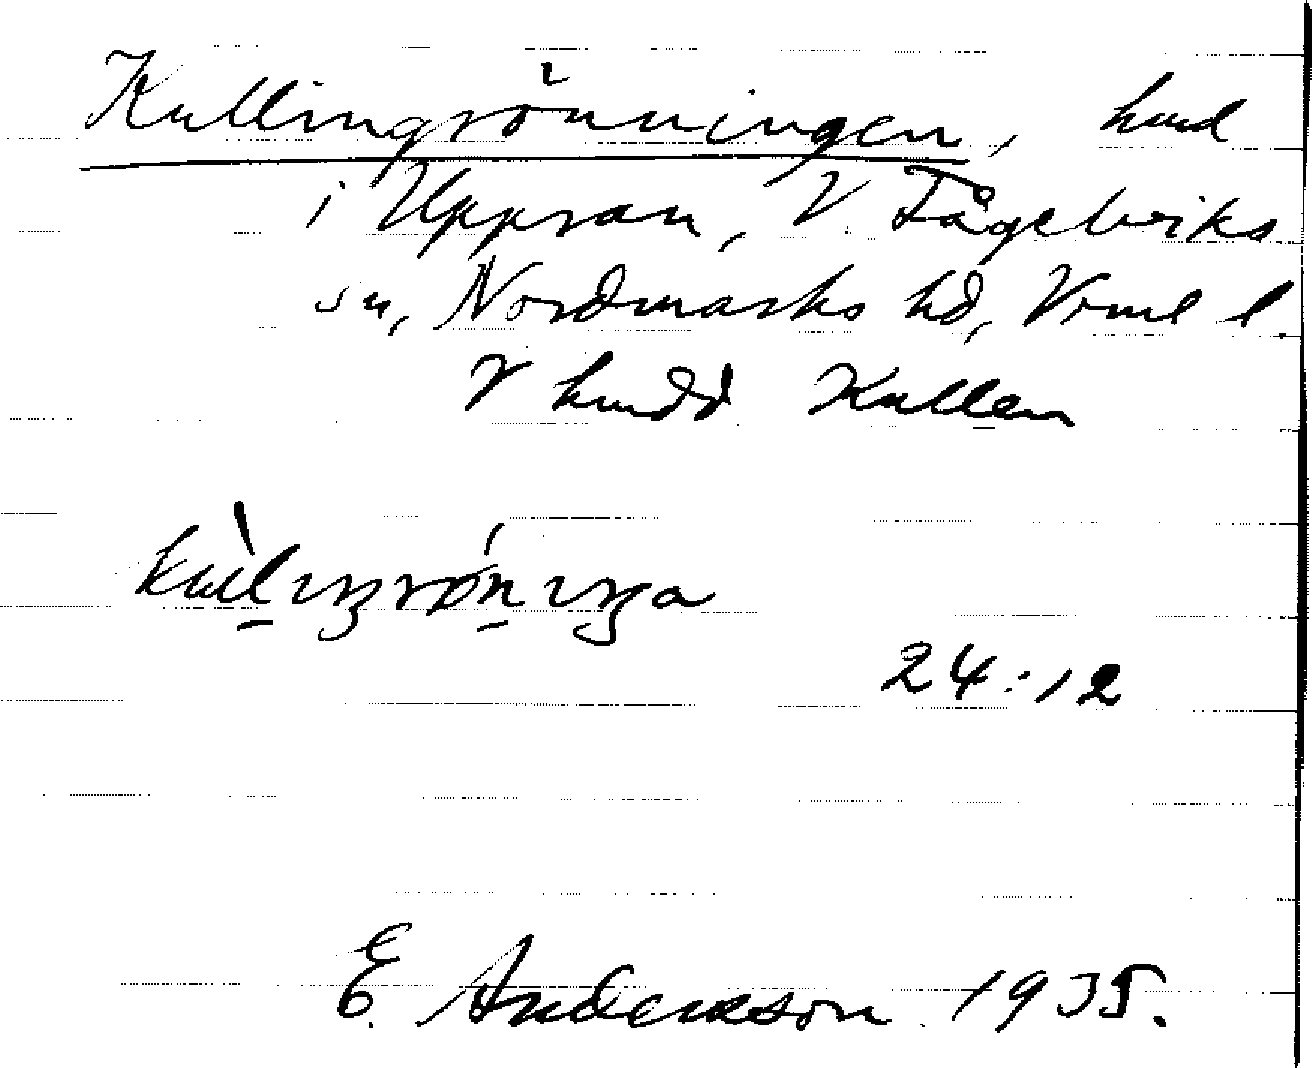 Kullingrönningen, hmd
i Uppsan, V. Fågelviks
sn, Nordmarks hd, Vrml l.
V hmdd Kullen
kùlıŋrǿnıŋa
24:12
E. Anderson 1935.